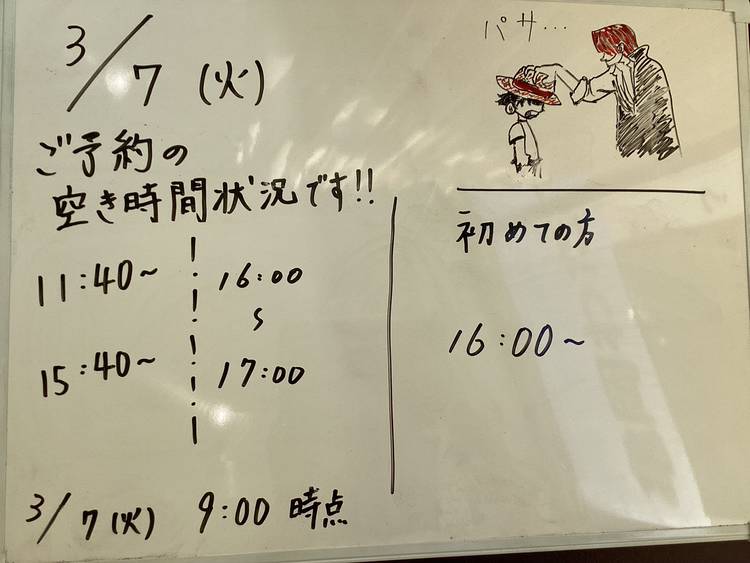 3/7 (火)
パサ…
ご予約の
空き時間状況です!!
11:40~
15:40~
16:00
~
17:00
初めての方
16:00~
3/7(火) 9:00 時点